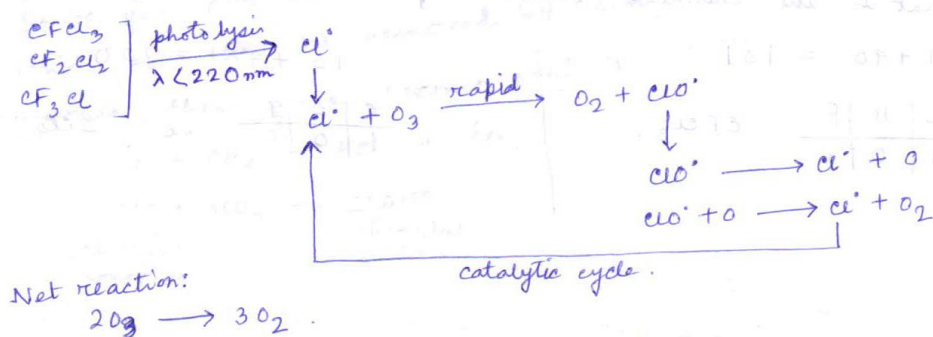 CFCl₃
CF₂Cl₂
CF₃Cl
photolysis
λ<220nm
Cl˙
Cl˙ + O₃
rapid
O₂ + ClO˙
ClO˙ → Cl˙ + O
ClO˙ + O → Cl˙ + O₂
catalytic cycle.
Net reaction:
2O₃ → 3O₂.